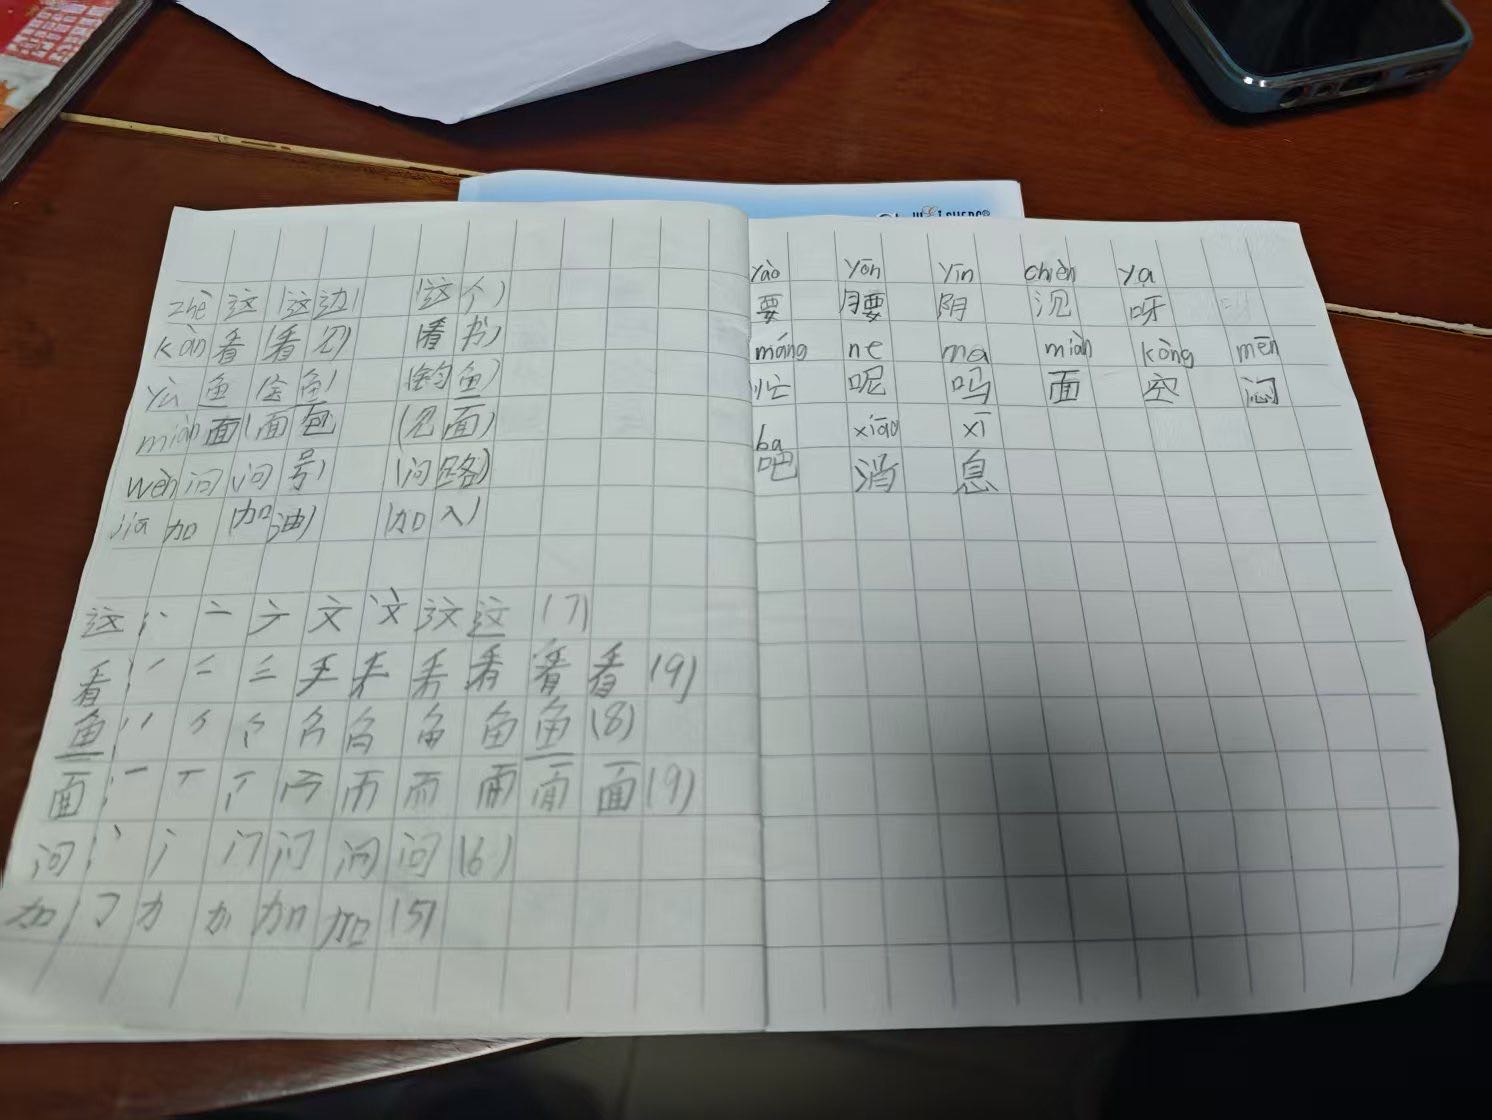 zhè 这 (这边) (这个)
kàn 看 (看见) (看书)
yú 鱼 (金鱼) (钓鱼)
miàn 面 (面包) (见面)
wèn 问 (问号) (问路)
jiā 加 (加油) (加入)
这: 丶 亠 ナ 文 文 这 这 (7)
看: 一 二 三 手 看 看 看 看 看 (9)
鱼: 丿 ⺈ 鱼 鱼 (8)
面: 一 丆 面 面 (9)
问: 丶 门 问 问 (6)
加: ㇆ 力 加 加 加 (5)
yào yōn yīn chièn ya
要 腰 阴 沉 呀
máng ne ma miàn kòng mēn
忙 呢 吗 面 空 闷
ba xiāo xī
吧 消 息